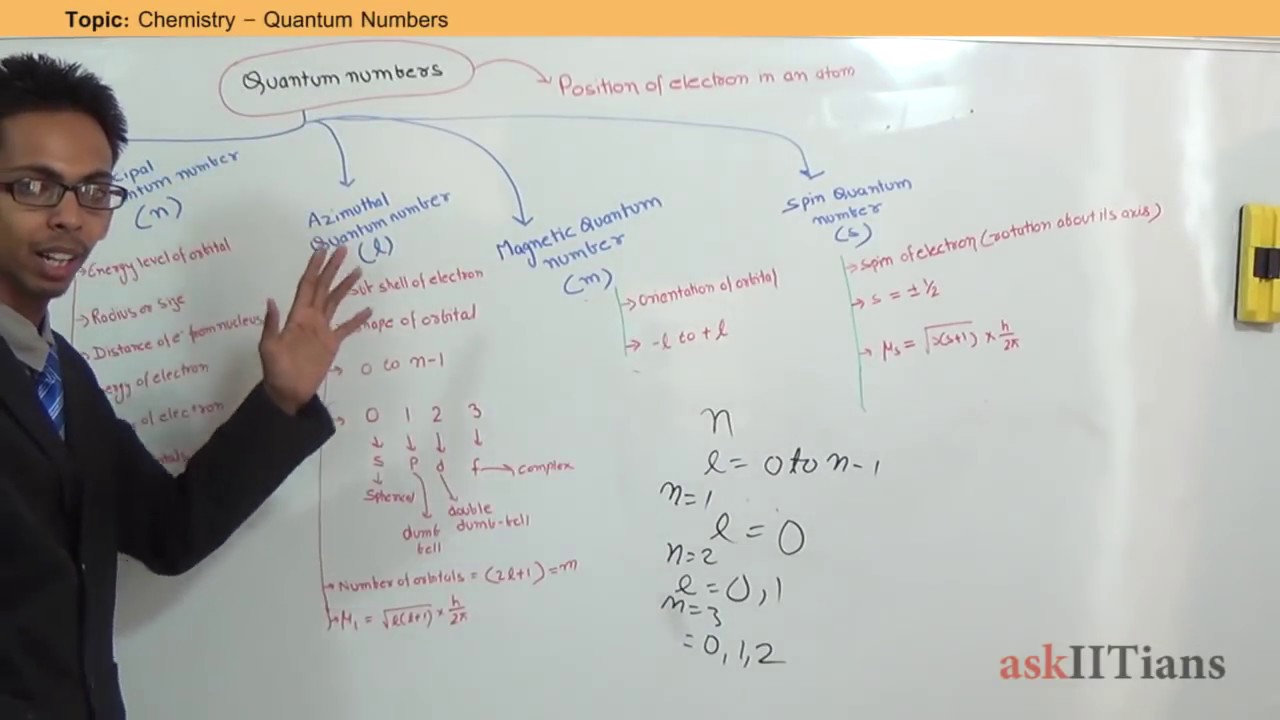 Topic: Chemistry – Quantum Numbers
Quantum numbers
Position of electron in an atom
number
(n)
Energy level of orbital
Radius or size
Distance of e⁻ from nucleus
of electron
of electron
Azimuthal
Quantum number
(l)
shell of electron
of orbital
0 to n-1
0 1 2 3
s p d f → complex
Spherical
dumb
bell
double
dumb-bell
Number of orbitals = (2l+1) = m
μ₁ = √l(l+1) × h/2π
Magnetic Quantum
number
(m)
Orientation of orbital
-l to +l
Spin Quantum
number
(s)
Spin of electron (rotation about its axis)
s = ± 1/2
μs = √s(s+1) × h/2π
n
l = 0 to n-1
n=1
l = 0
n=2
l = 0,1
n=3
= 0,1,2
askIITians